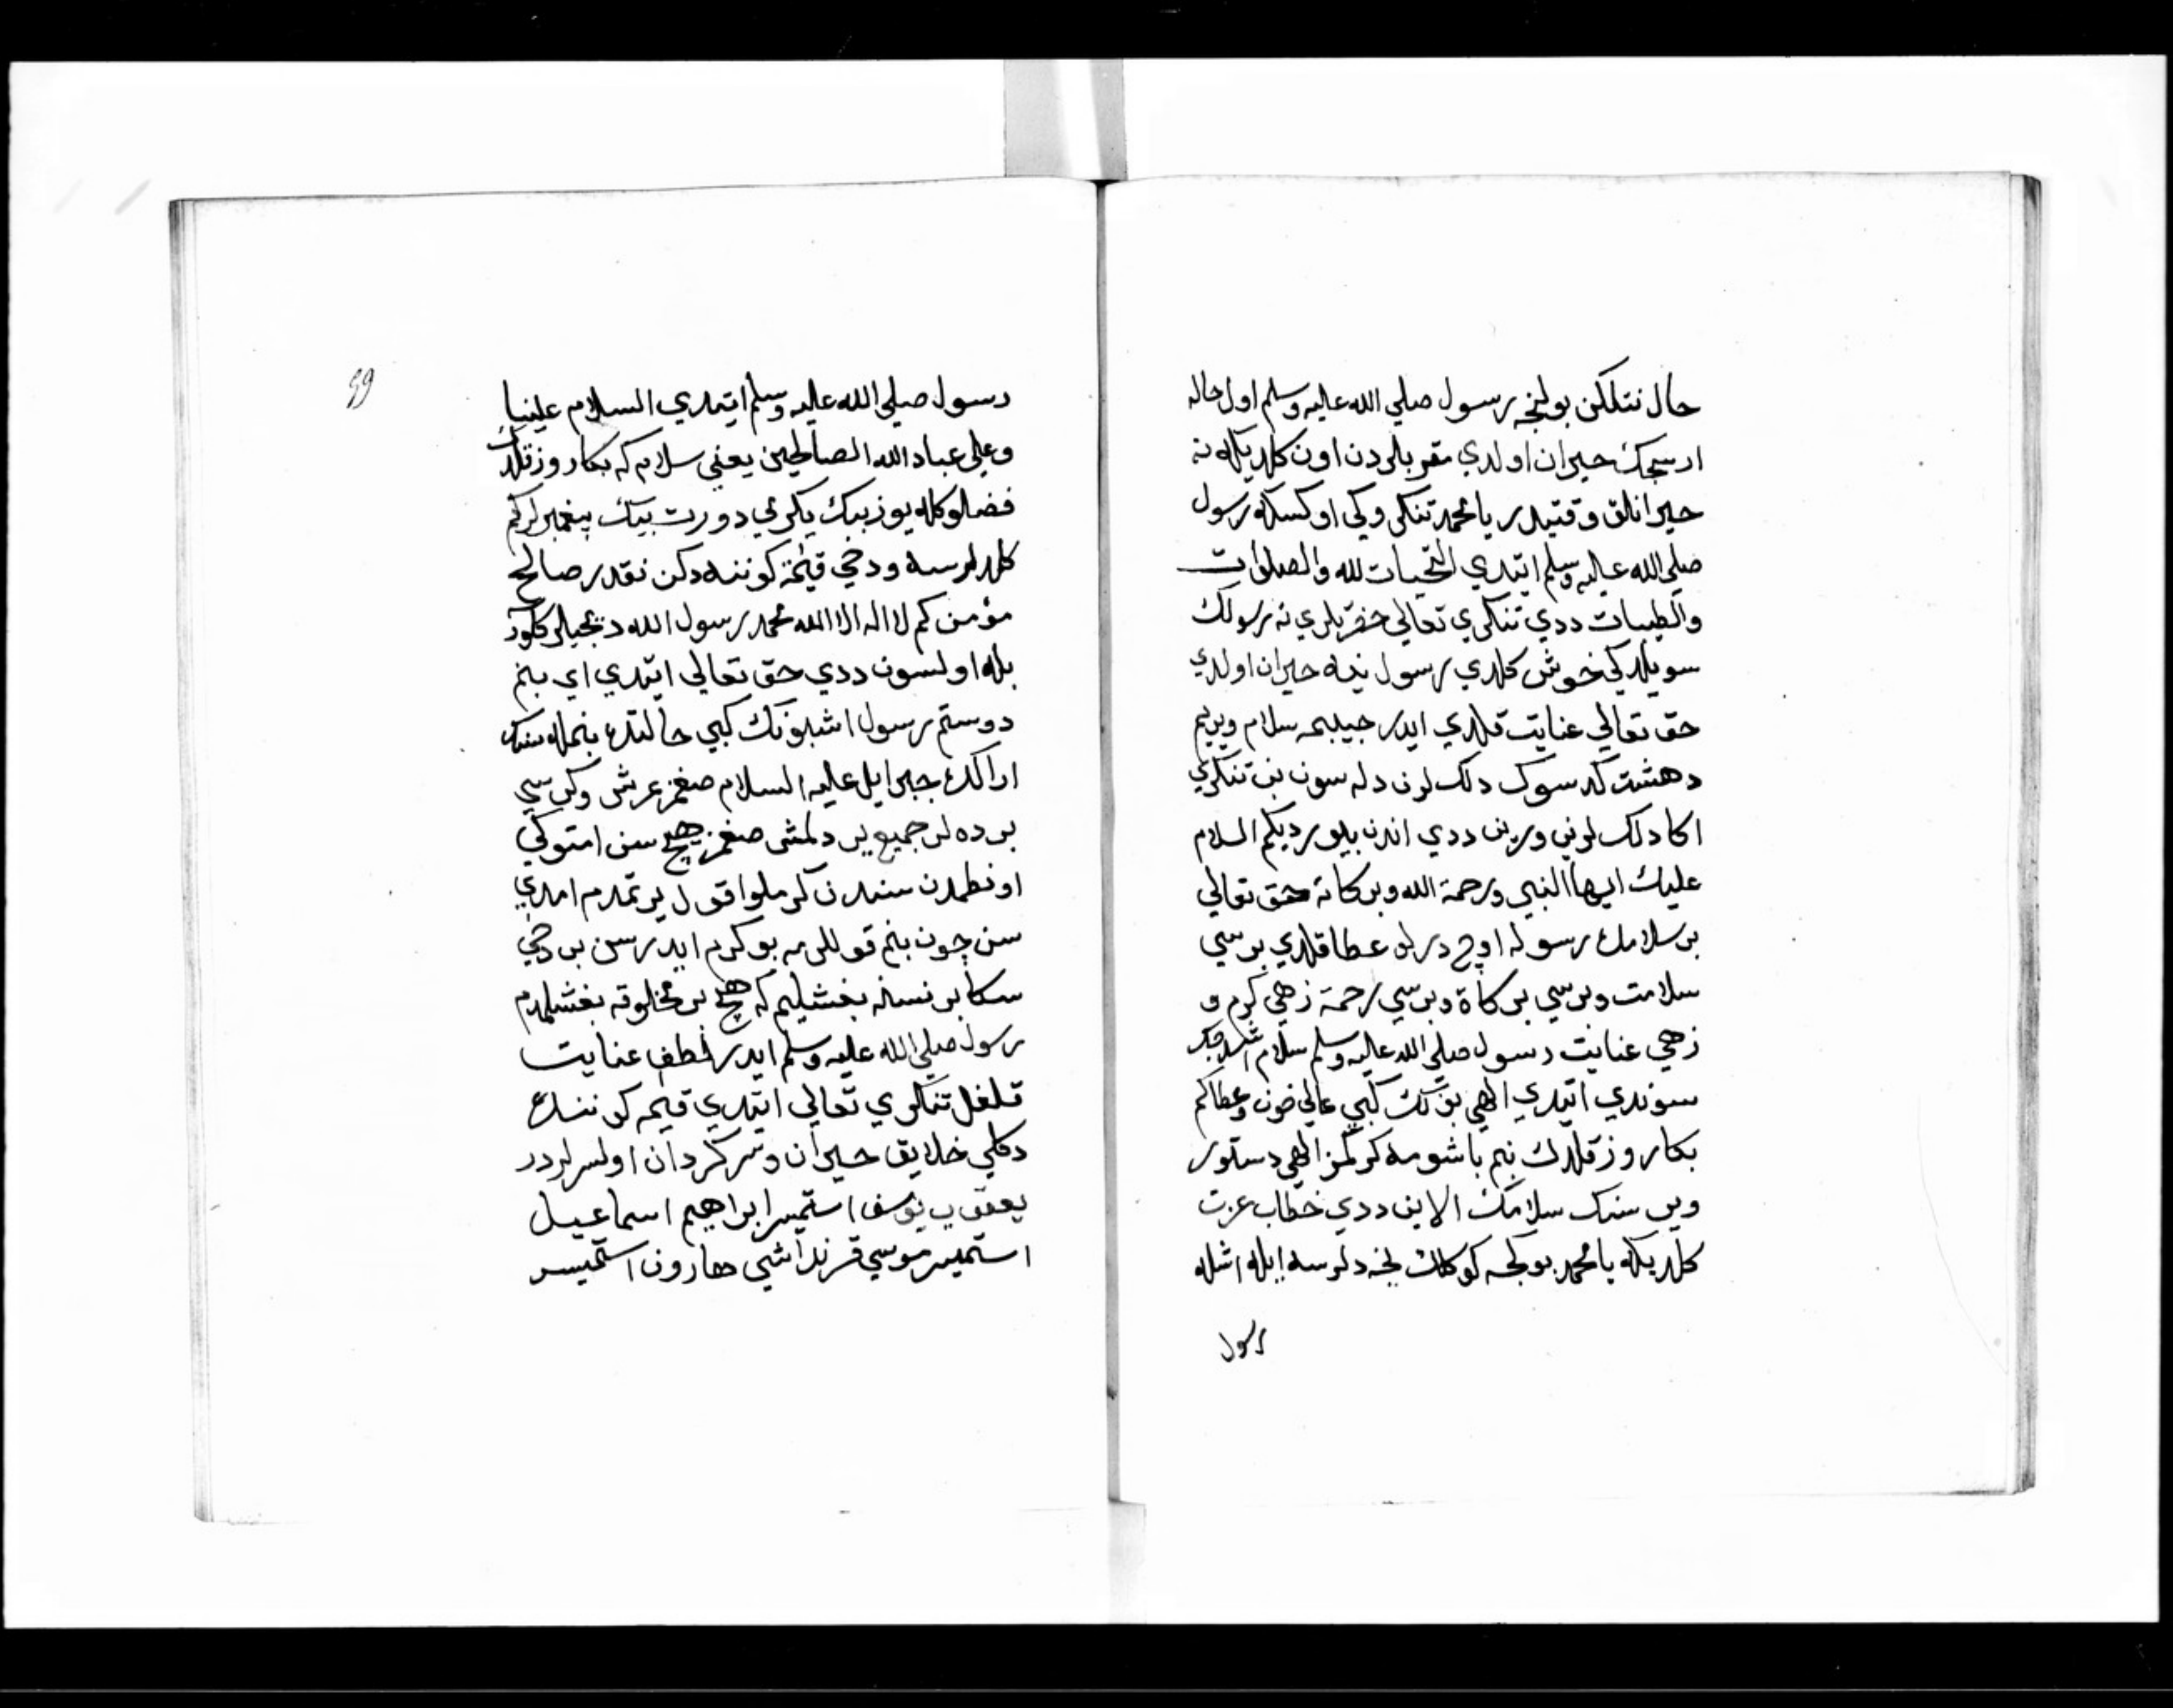 حال نتلكن بولنجه رسول صلي الله عليه وسلم اول حاله
ارسجك حيران اولدي مقربلردن اون كلديكه نه
حيرانلق وقتيدر يا محمد تنكلي وكي اوكسله رسول
صلي الله عليه وسلم ايتدي التحيات لله والصلوات
والطيبات ددي تنكري تعالي حضرتلري نه رسولك
سويلدكي خوش كلدي رسول ينه حيران اولدي
حق تعالي عنايت قلدي ايدر حبيبمه سلام ويريم
دهشت كدسوك دلك لرن دله سون بن تنكري
اكا دلك لرني ورين ددي اندن بيوردیكم السلام
عليك ايها النبي ورحمة الله وبركاته حق تعالي
بر سلامله رسوله اوچ درلو عطا قلدي بر سي
سلامت وبرسي بركاة وبرسي رحمة زهي كرم و
زهي عنايت رسول صلي الله عليه وسلم سلام اشدجك
سوندي ايتدي الهي بونك كبي عالي خون وعطاكم
بكا روز قلدك بنم باشومه كركمز الهي دستور
وير سنك سلامك الاين ددي خطاب عزت
كلديكه يا محمد بوكجه كوكلك نجه دلرسه ايله اشله
رسول
99
رسول صلي الله عليه وسلم ايتدي السلام علينا
وعلي عباد الله الصالحين يعني سلام كه بكا روز قلدك
فضلوكله يوز بيك يكرمي دورت بيك پيغمبرلركم
كلدلرسه ودخي قيامة كوننه دكن نقدر صالح
مؤمن كم لا اله الا الله محمد رسول الله ديجيلر كلور
بله اولسون ددي حق تعالي ايتدي اي بنم
دوستم رسول اشبونك كبي حالتده بنمله سنك
اراكده جبرايل عليه السلام صغمز عرش وكرسي
برده لر جميع ير دلمشى صغمز هيچ سن امتوكي
اونطمدن سندن كرملو اقول يرتمدم امدي
سن چون بنم قوللرمه بو كرم ايدرسن بن دخي
سكا بر نسنه بغشليم كه هيچ بر مخلوقه بغشلمدم
رسول صلي الله عليه وسلم ايدر لطف عنايت
قلغل تنكري تعالي ايتدي قيامه كوننده
دكلي خلايق حيران وسركردان اولسرلردر
يعقوب يوسف استميسر ابراهيم اسماعيل
استميسر موسي قرنداشي هارون استميسر